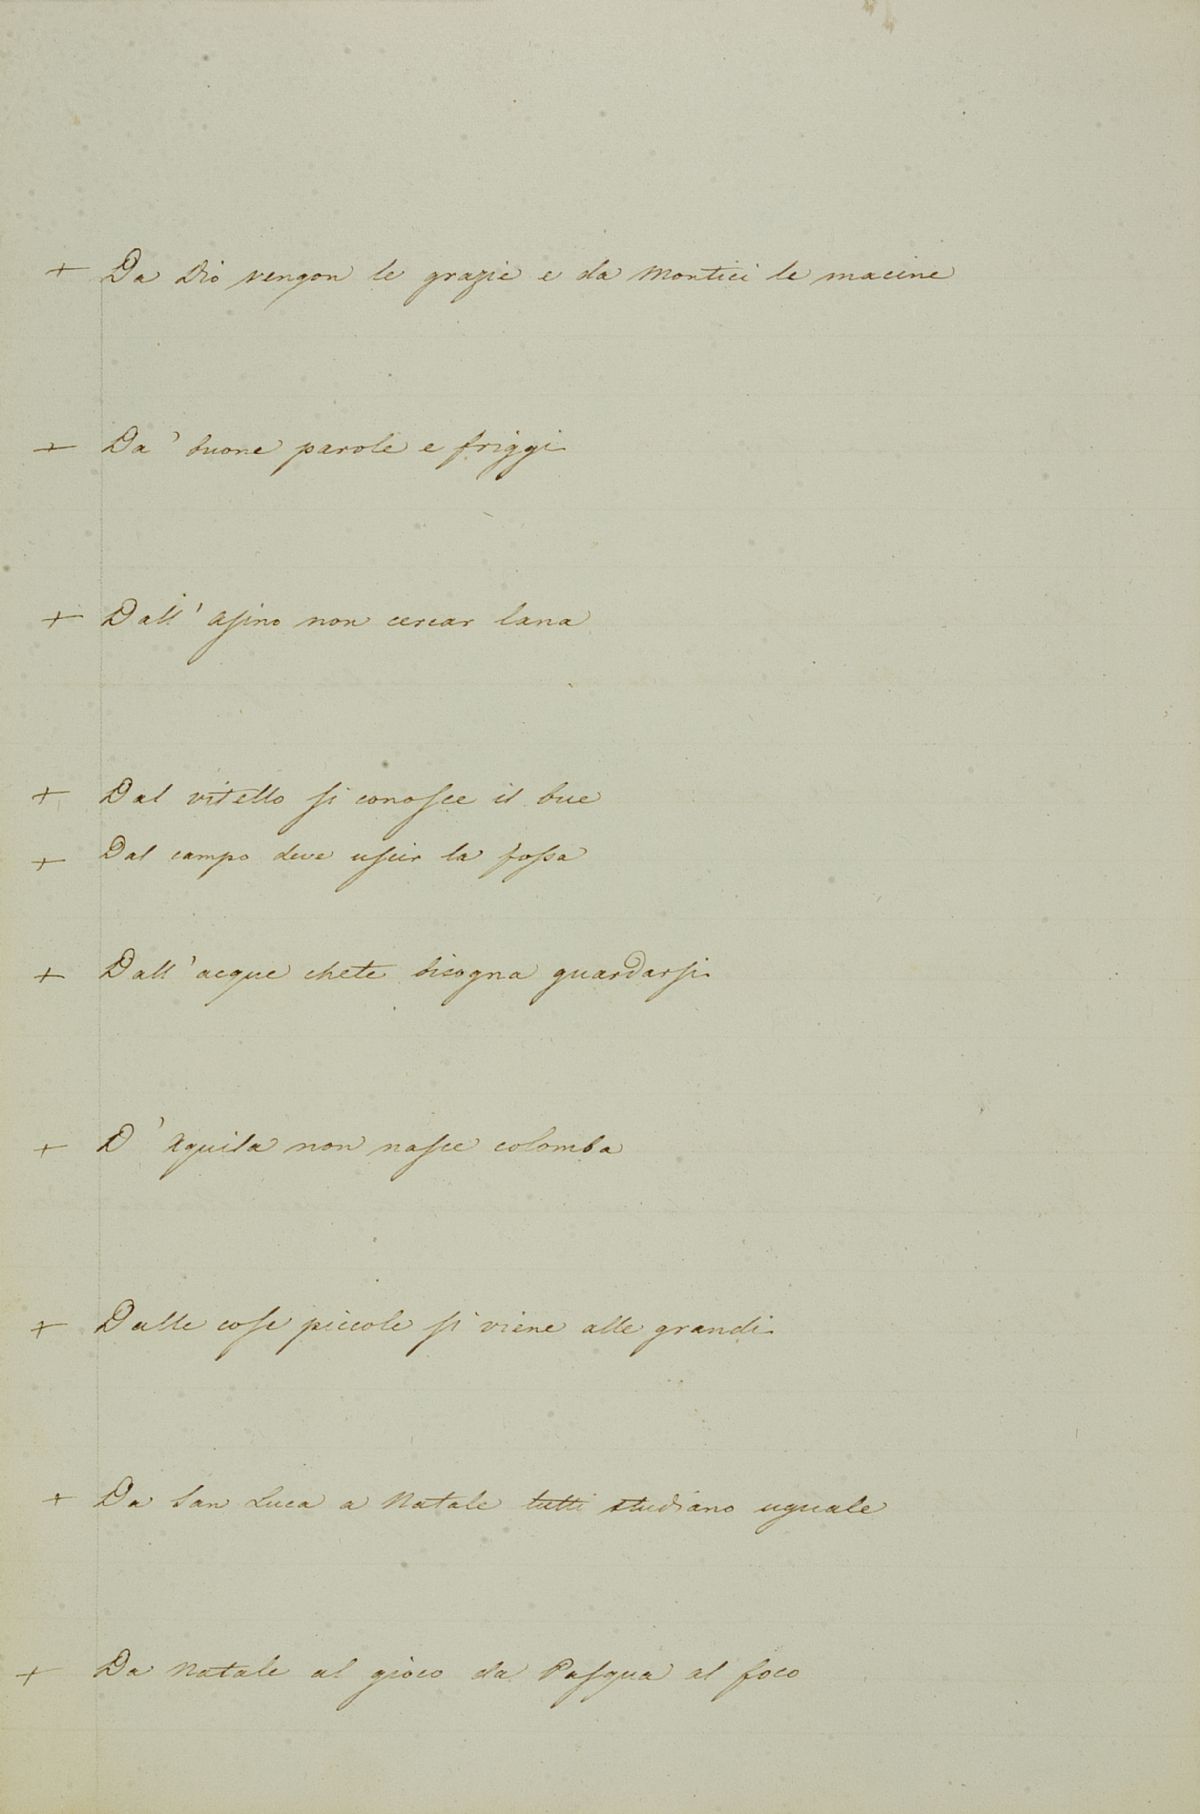 + Da Dio vengon le grazie e da Montici le macine
+ Da' buone parole e friggi
+ Dall' Asino non cercar lana
+ Dal vitello si conosce il bue
+ Dal campo deve uscir la fossa
+ Dall' acque chete bisogna guardarsi
+ D' Aquila non nasce colomba
+ Dalle cose piccole si viene alle grandi
+ Da San Luca a Natale tutti studiano uguale
+ Da Natale al gioco da Pasqua al foco